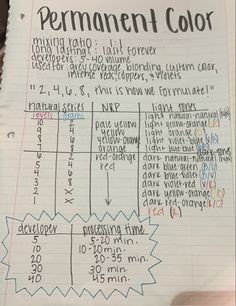 Permanent Color
mixing ratio : 1:1
long lasting : lasts forever
developers : 5-40 volume
used for : grey coverage, blonding, custom color,
intense reds, coppers, + violets
"2, 4, 6, 8, this is how we formulate!"
natural series NRP light tones
levels grams light natural-natural
10 2 pale yellow light yellow-orange
9 yellow light orange
8 yellow-orange light violet-blue
7 orange light blue-blue
dark tones
6 2 red-orange dark natural-natural
5 red dark blue-green
4 dark blue-blue
3 8 dark violet-red
2 X dark yellow-orange
1 X dark red-orange
red (R)
developer processing time
5 5-20 min.
10 10-20 min.
20 20-35 min.
30 30 min.
40 45 min.